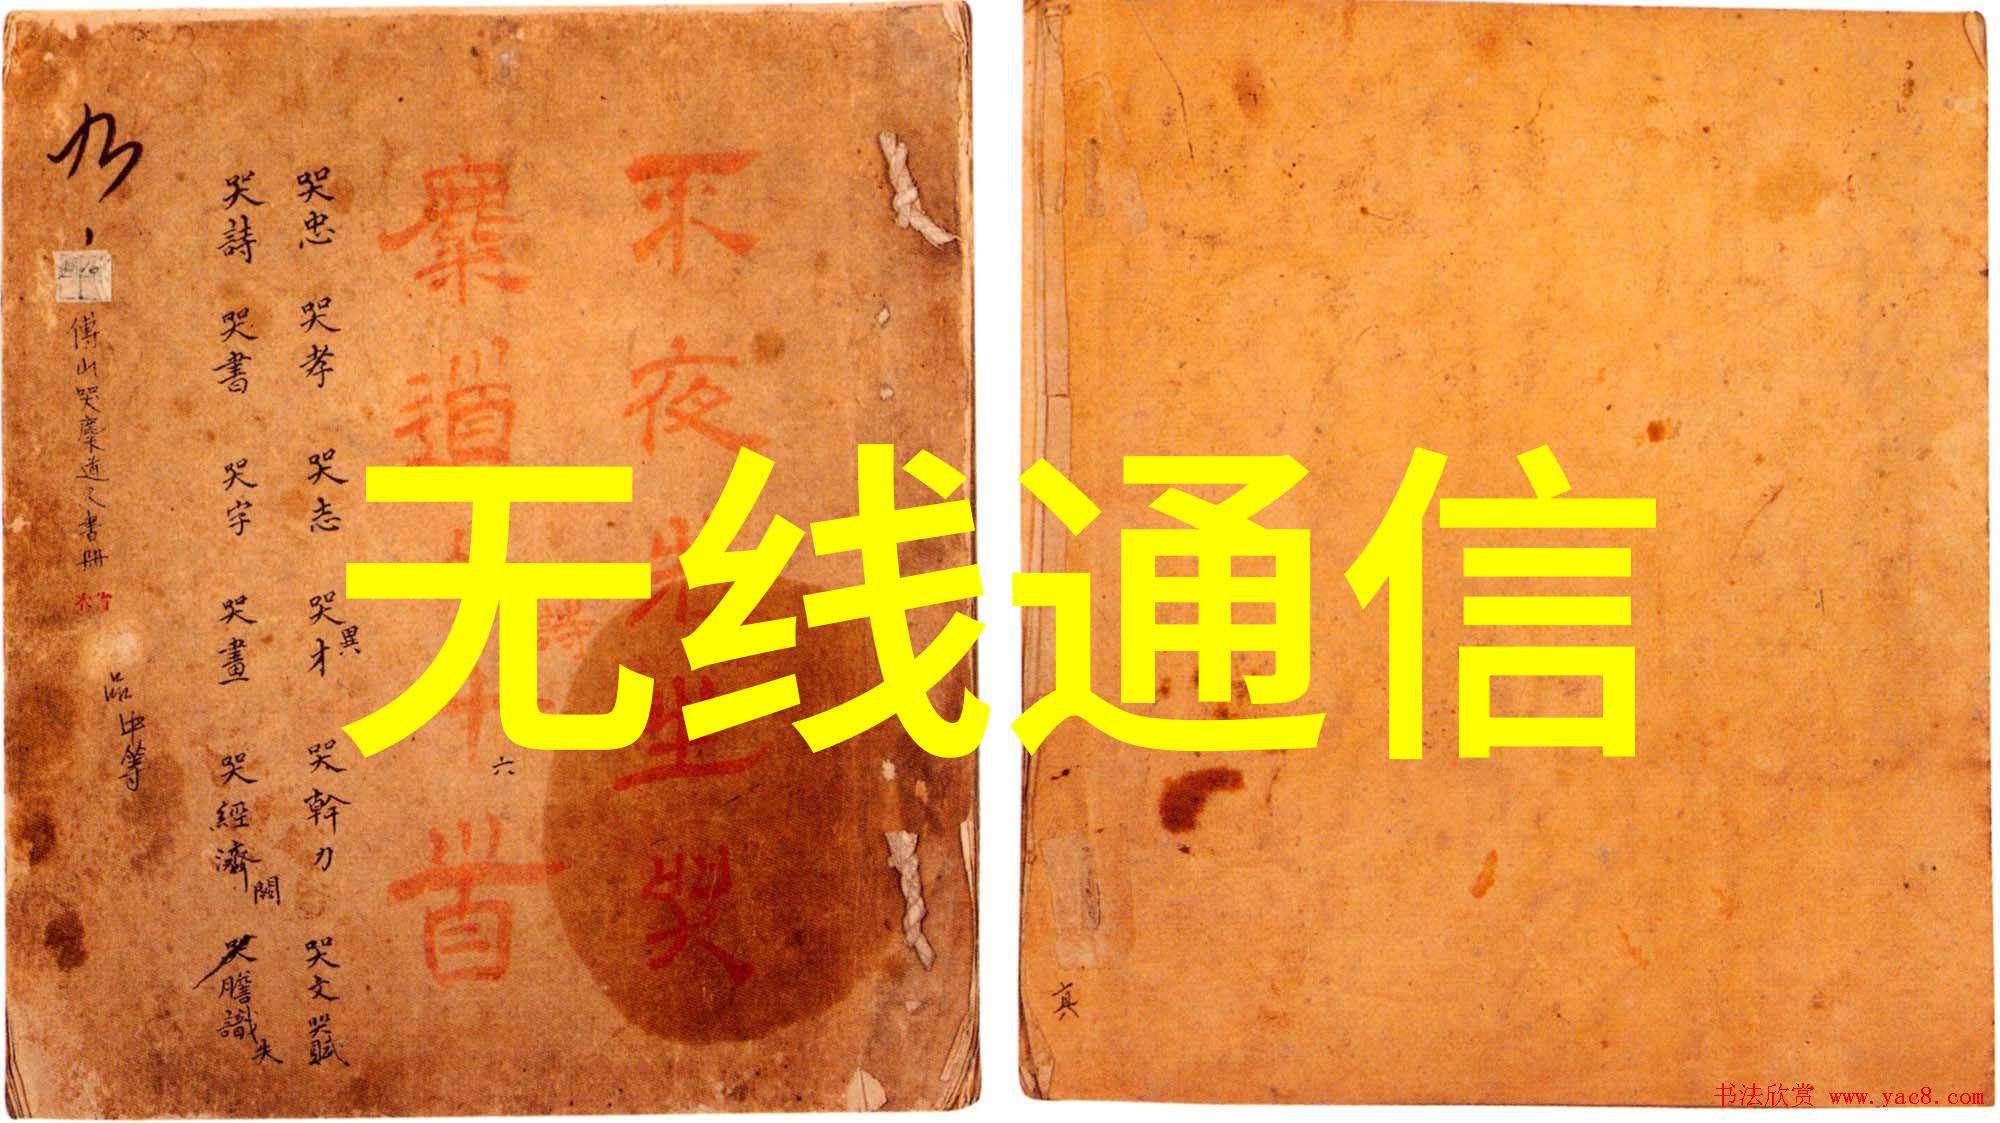 不夜先生哭
麋道士十首
詩
六
哭忠 哭孝 哭志 哭才異 哭幹力 哭文 哭賦
哭詩 哭書 哭字 哭畫 哭經濟 闊 哭膽識 失
傅山哭麋道之書册
品中等
真
无线通信
书法欣赏 www.yac8.com